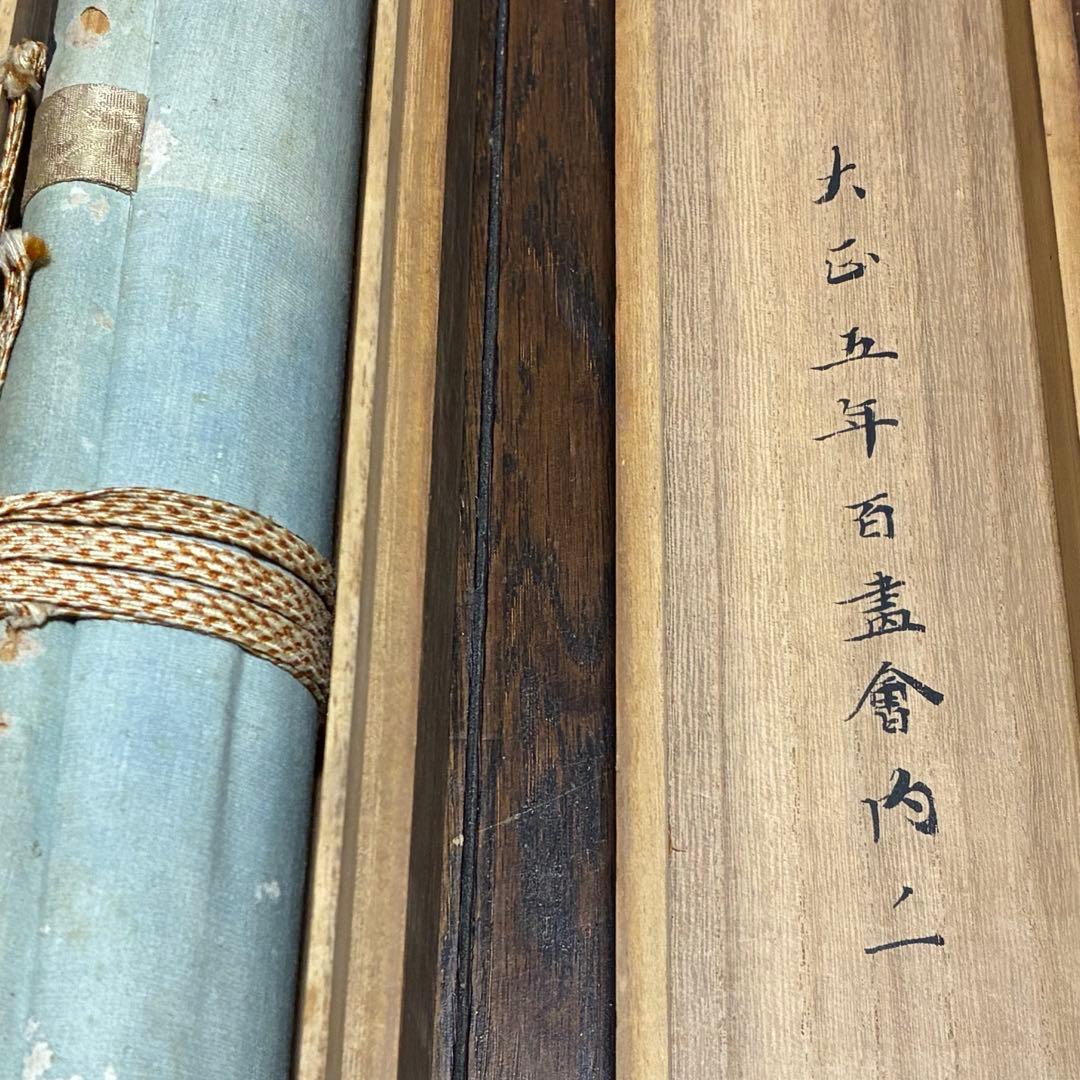 大正五年百畫會内ノ一